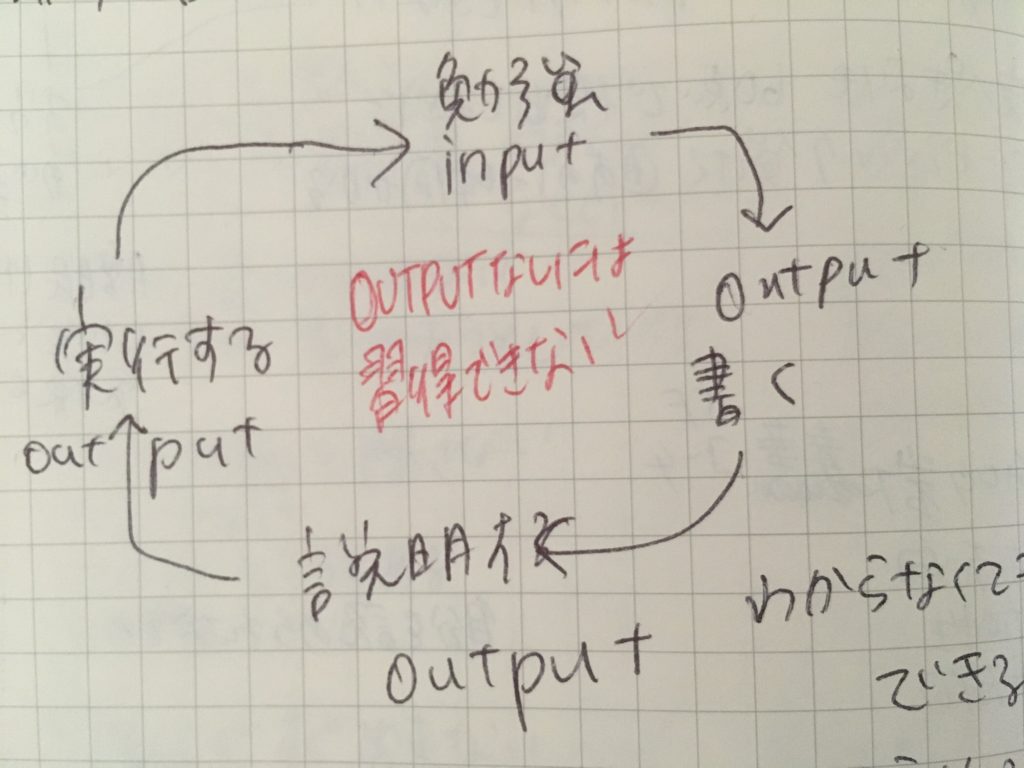 勉強
input
output
書く
説明する
output
実行する
output
OUTPUTなしでは
習得できない
わからなくて
できる